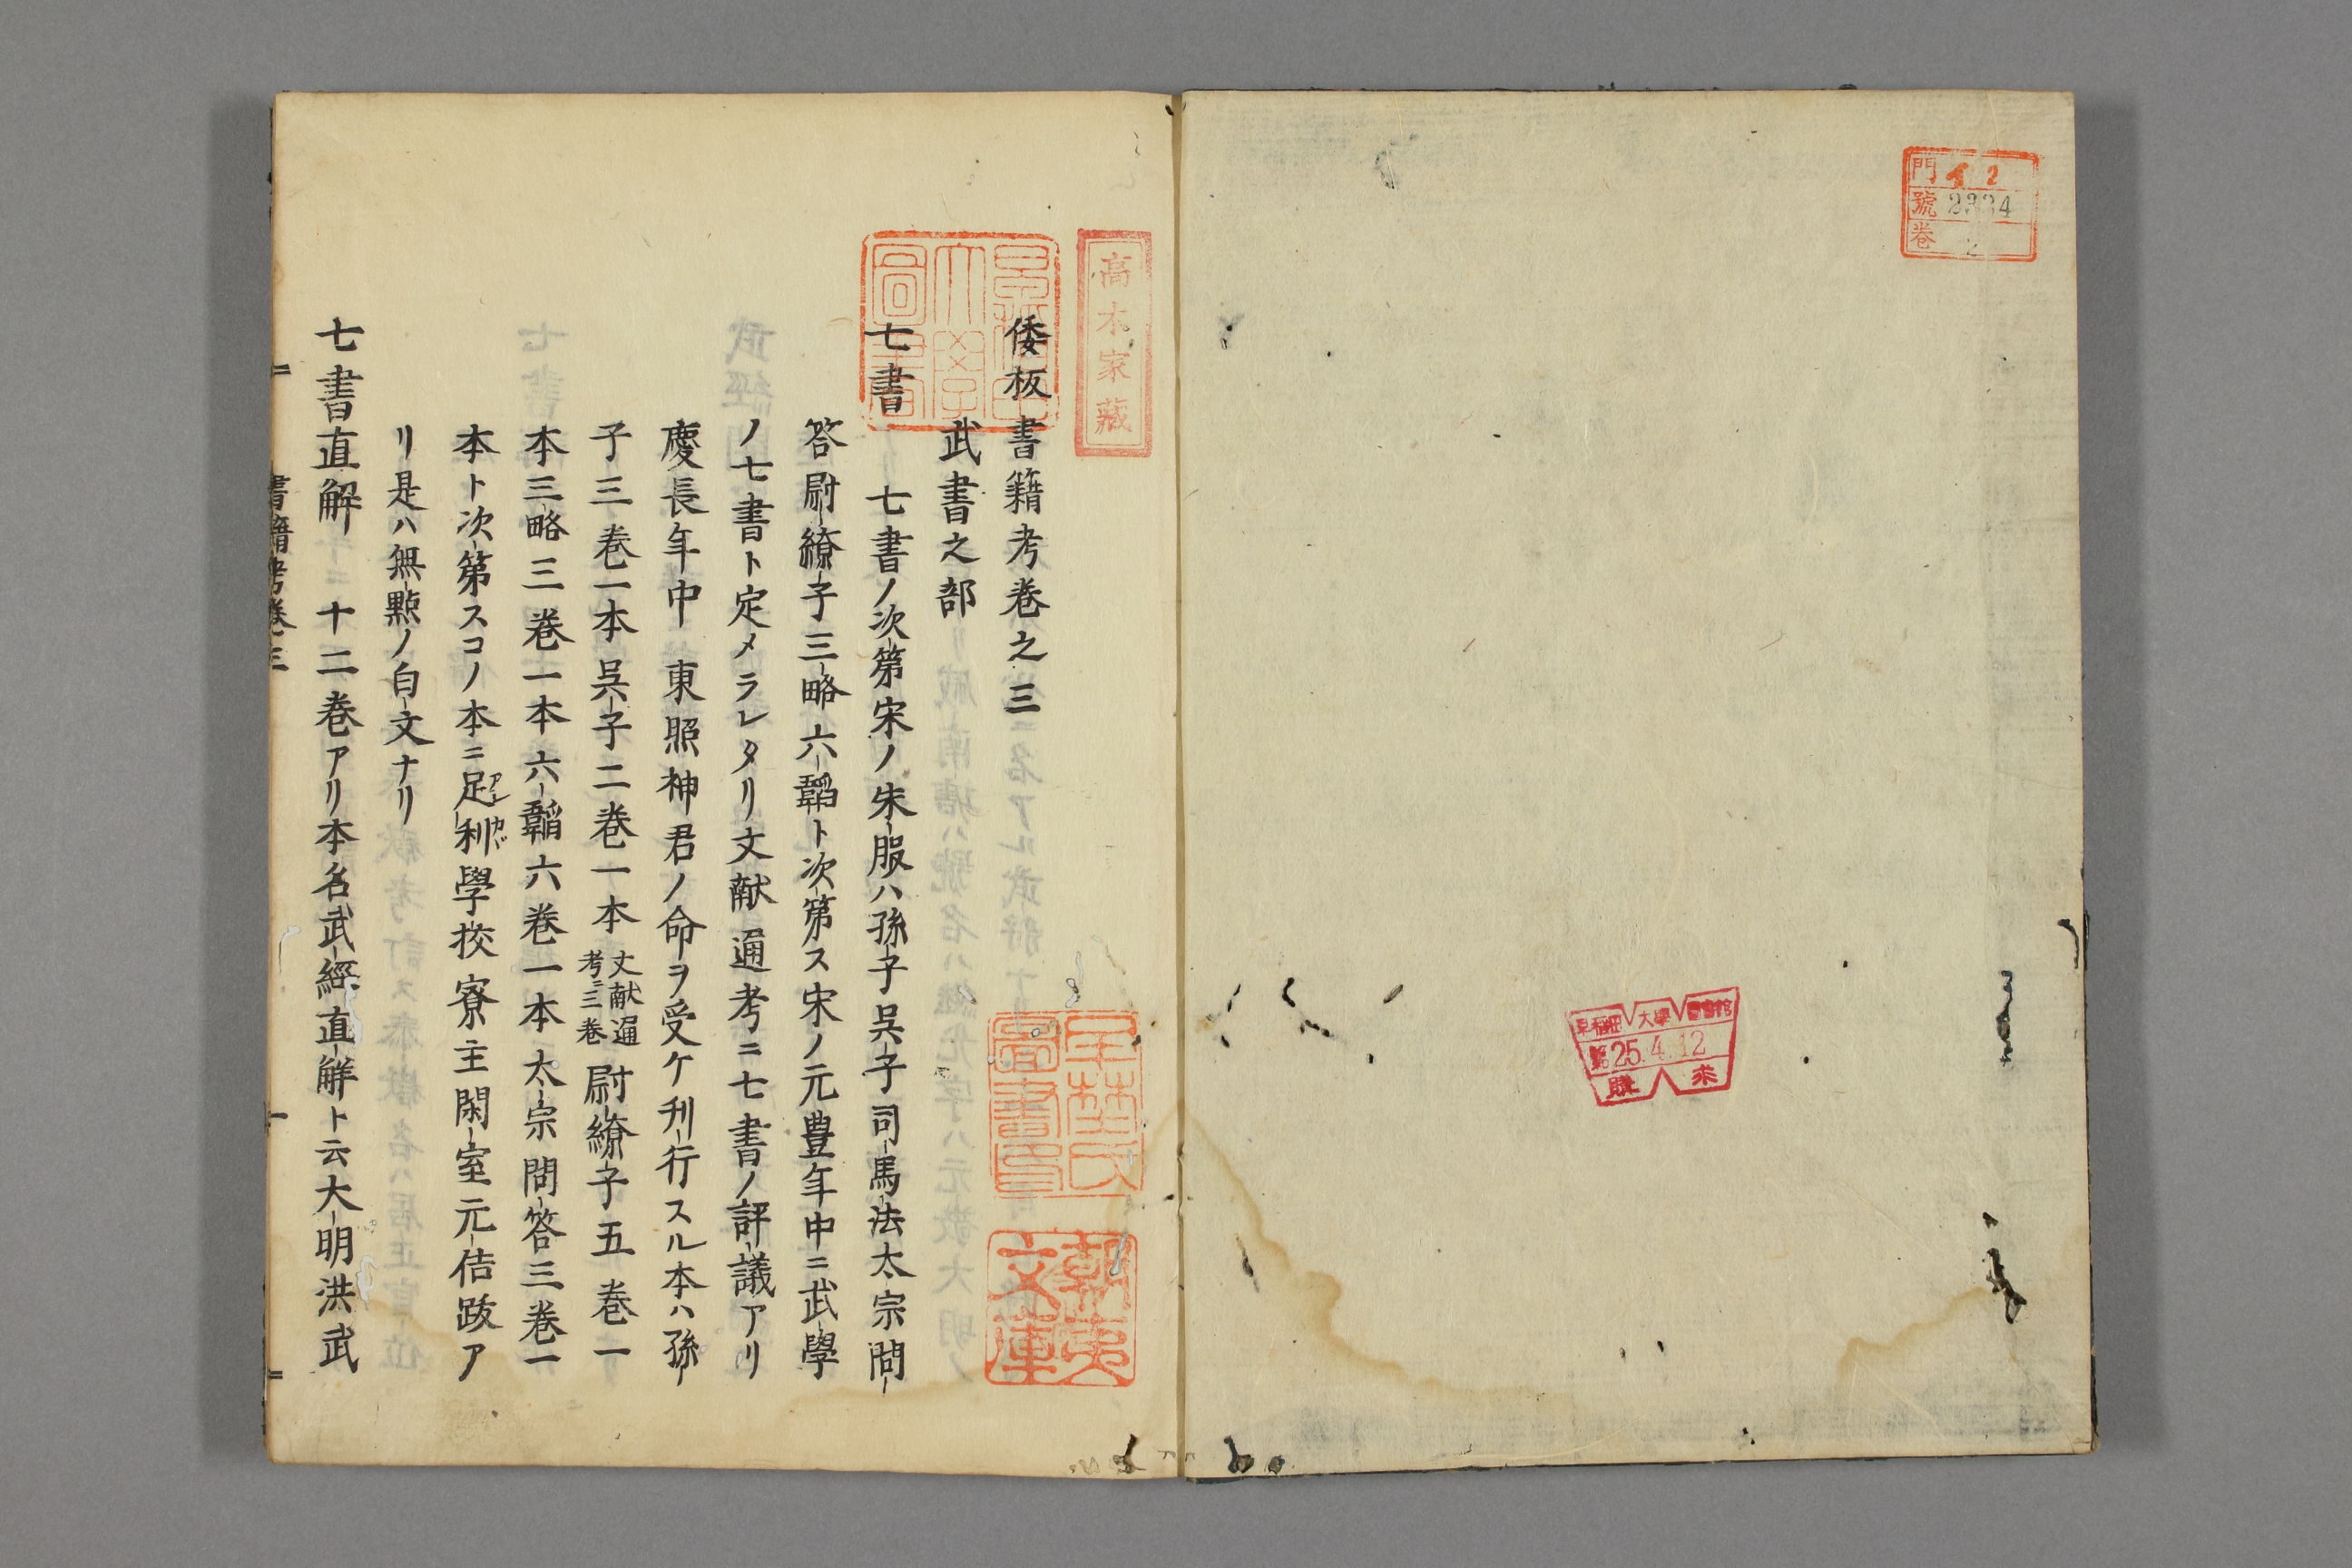 門 イ 2
號 2334
卷 2
早稲田大學圖書館
25.4.12
購求
高木家藏
倭板書籍考卷之三
武書之部
七書 七書ノ次第宋ノ朱服ハ孫子呉子司馬法太宗問
答尉繚子三略六韜ト次第ス宋ノ元豊年中ニ武學
ノ七書ト定メラレタリ文献通考ニ七書ノ評議アリ
慶長年中 東照神君ノ命ヲ受ケ刊行スル本ハ孫
子三巻一本呉子二巻一本
文献通
考ニ三巻
尉繚子五巻一
本三略三巻一本六韜六巻一本太宗問答三巻一
本ト次第スコノ本ニ足利學挍寮主閑室元佶跋ア
リ是ハ無點ノ白文ナリ
七書直解 十二巻アリ本名武經直解ト云大明洪武
書籍考巻三